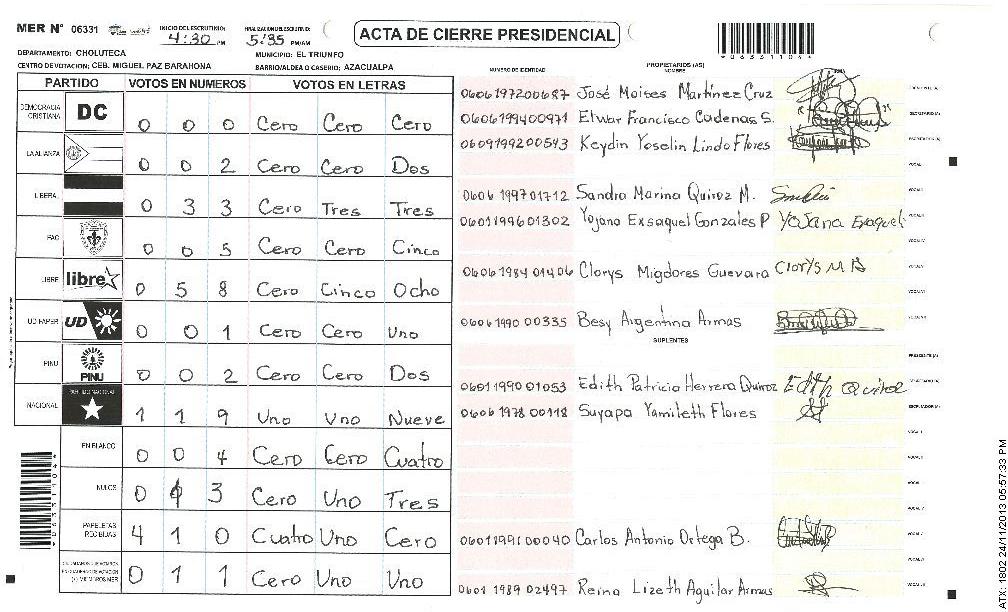 MER N° 06331
INICIO DEL ESCRUTINIO: 4:30 PM
FINALIZACION DEL ESCRUTINIO: 5:35 PM/AM
ACTA DE CIERRE PRESIDENCIAL
06331104
DEPARTAMENTO: CHOLUTECA
MUNICIPIO: EL TRIUNFO
CENTRO DE VOTACION: CEB. MIGUEL PAZ BARAHONA
BARRIO/ALDEA O CASERIO: AZACUALPA
PARTIDO VOTOS EN NUMEROS VOTOS EN LETRAS
DEMOCRACIA CRISTIANA DC 0 0 0 Cero Cero Cero
LA ALIANZA 0 0 2 Cero Cero Dos
LIBERAL 0 3 3 Cero Tres Tres
PAC 0 0 5 Cero Cero Cinco
LIBRE libre 0 5 8 Cero Cinco Ocho
UD FAPER UD 0 0 1 Cero Cero Uno
PINU PINU 0 0 2 Cero Cero Dos
NACIONAL 1 1 9 Uno Uno Nueve
EN BLANCO 0 0 4 Cero Cero Cuatro
NULOS 0 1 3 Cero Uno Tres
PAPELETAS RECIBIDAS 4 1 0 Cuatro Uno Cero
0 1 1 Cero Uno Uno
NUMERO DE IDENTIDAD PROPIETARIOS (AS) NOMBRE FIRMA
0606197200687 José Moises Martínez Cruz
0606199400971 Elwar Francisco Cadenas S.
0609199200543 Keydin Yoselin Lindo Flores
0606 199701712 Sandra Marina Quiroz M.
0601199601302 Yojana Exsaquel Gonzales P Yojana Exaquel
0606 1984 01406 Clorys Migdores Guevara Clorys M
0606 1990 00335 Besy Argentina Armas
SUPLENTES
0601 1990 01053 Edith Patricia Herrera Quiroz Edith Quiroz
0606 1978 00118 Suyapa Yamileth Flores
06011991 00040 Carlos Antonio Ortega B.
0601 1989 02497 Reina Lizeth Aguilar Armas
06331104
ATX: 1802 24/11/2013 05:57:33 PM